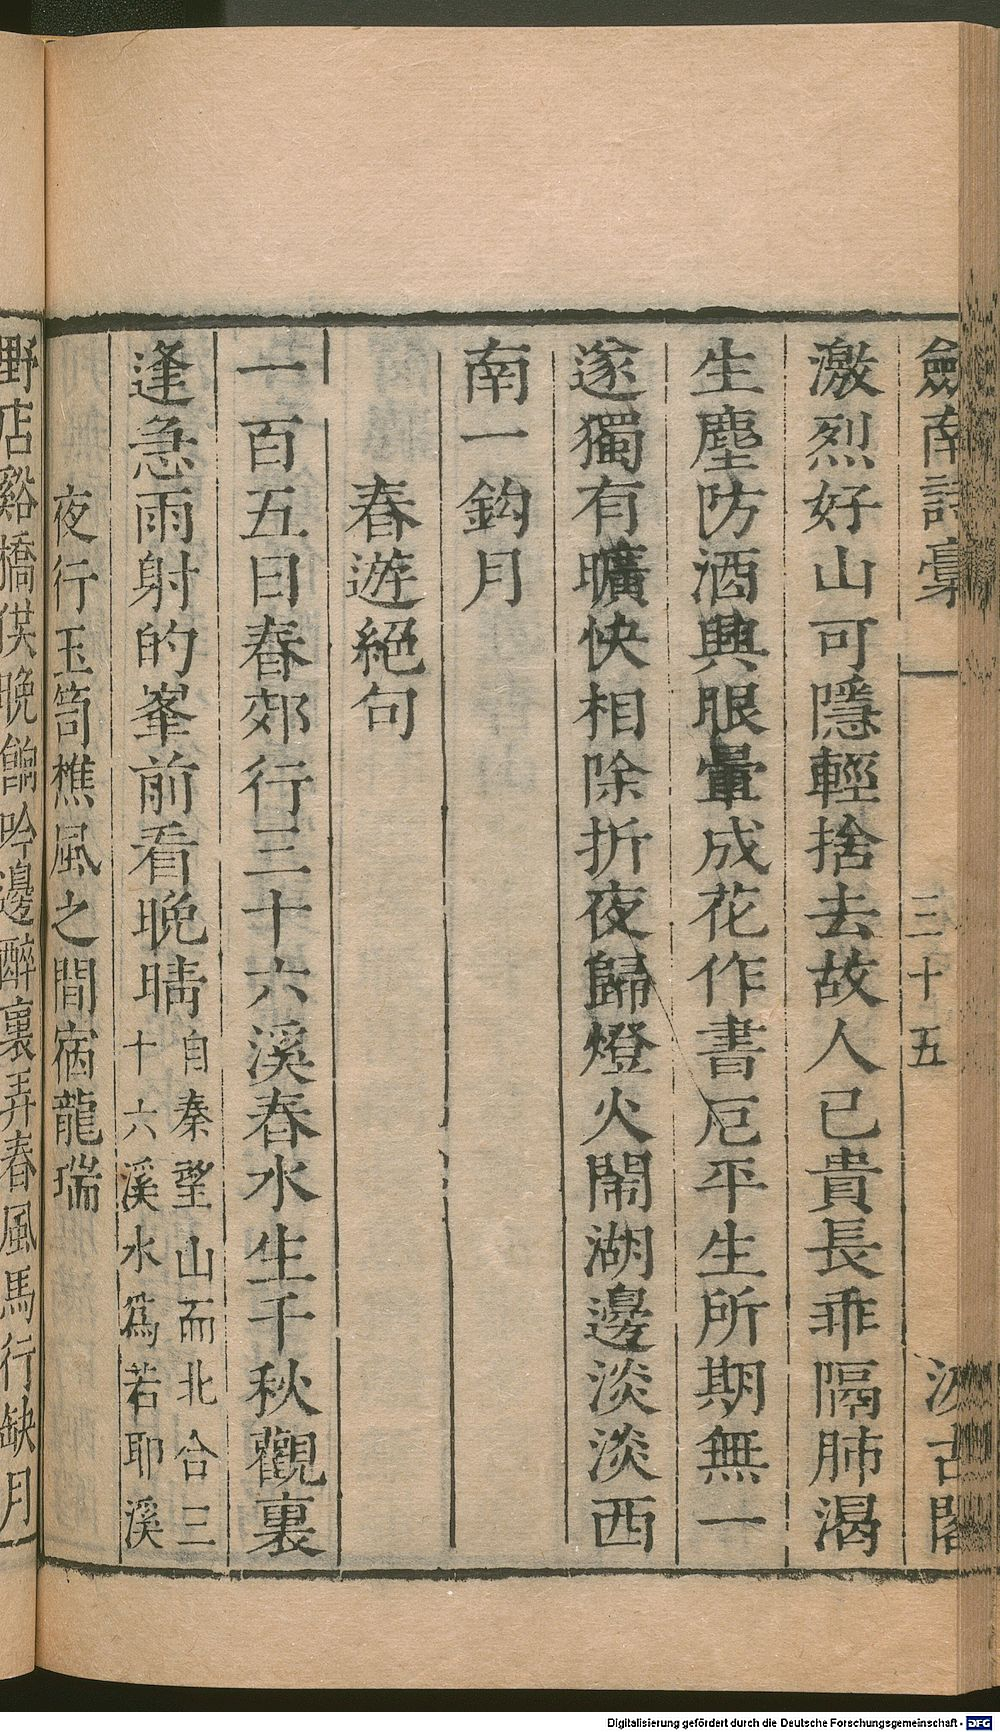 劒南詩稾
三十五
汲古閣
激烈好山可隱輕捨去故人已貴長乖隔肺渴
生塵防酒興眼暈成花作書厄平生所期無一
遂獨有曠快相除折夜歸燈火鬧湖邊淡淡西
南一鈎月
春遊絕句
一百五日春郊行三十六溪春水生千秋觀裏
逢急雨射的峯前看晚晴自秦望山而北合三
十六溪水爲若耶溪
夜行玉笥樵風之間宿龍瑞
野店谿橋供晚餉吟邊醉裏弄春風馬行缺月
Digitalisierung gefördert durch die Deutsche Forschungsgemeinschaft - DFG